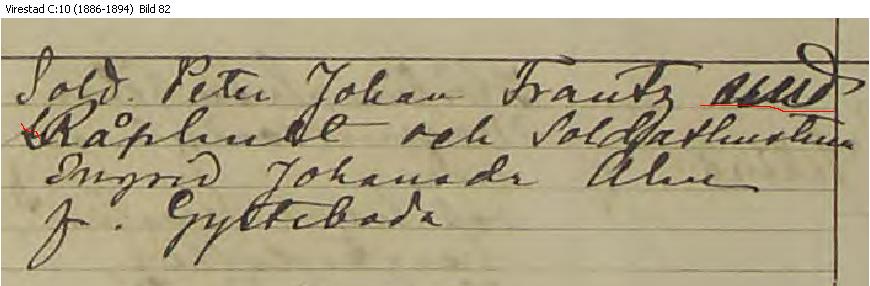 Virestad C:10 (1886-1894) Bild 82
Sold. Peter Johan Frantz
Råphult och Soldathustrun
Ingrid Johansdr Alm
fr. Gylteboda